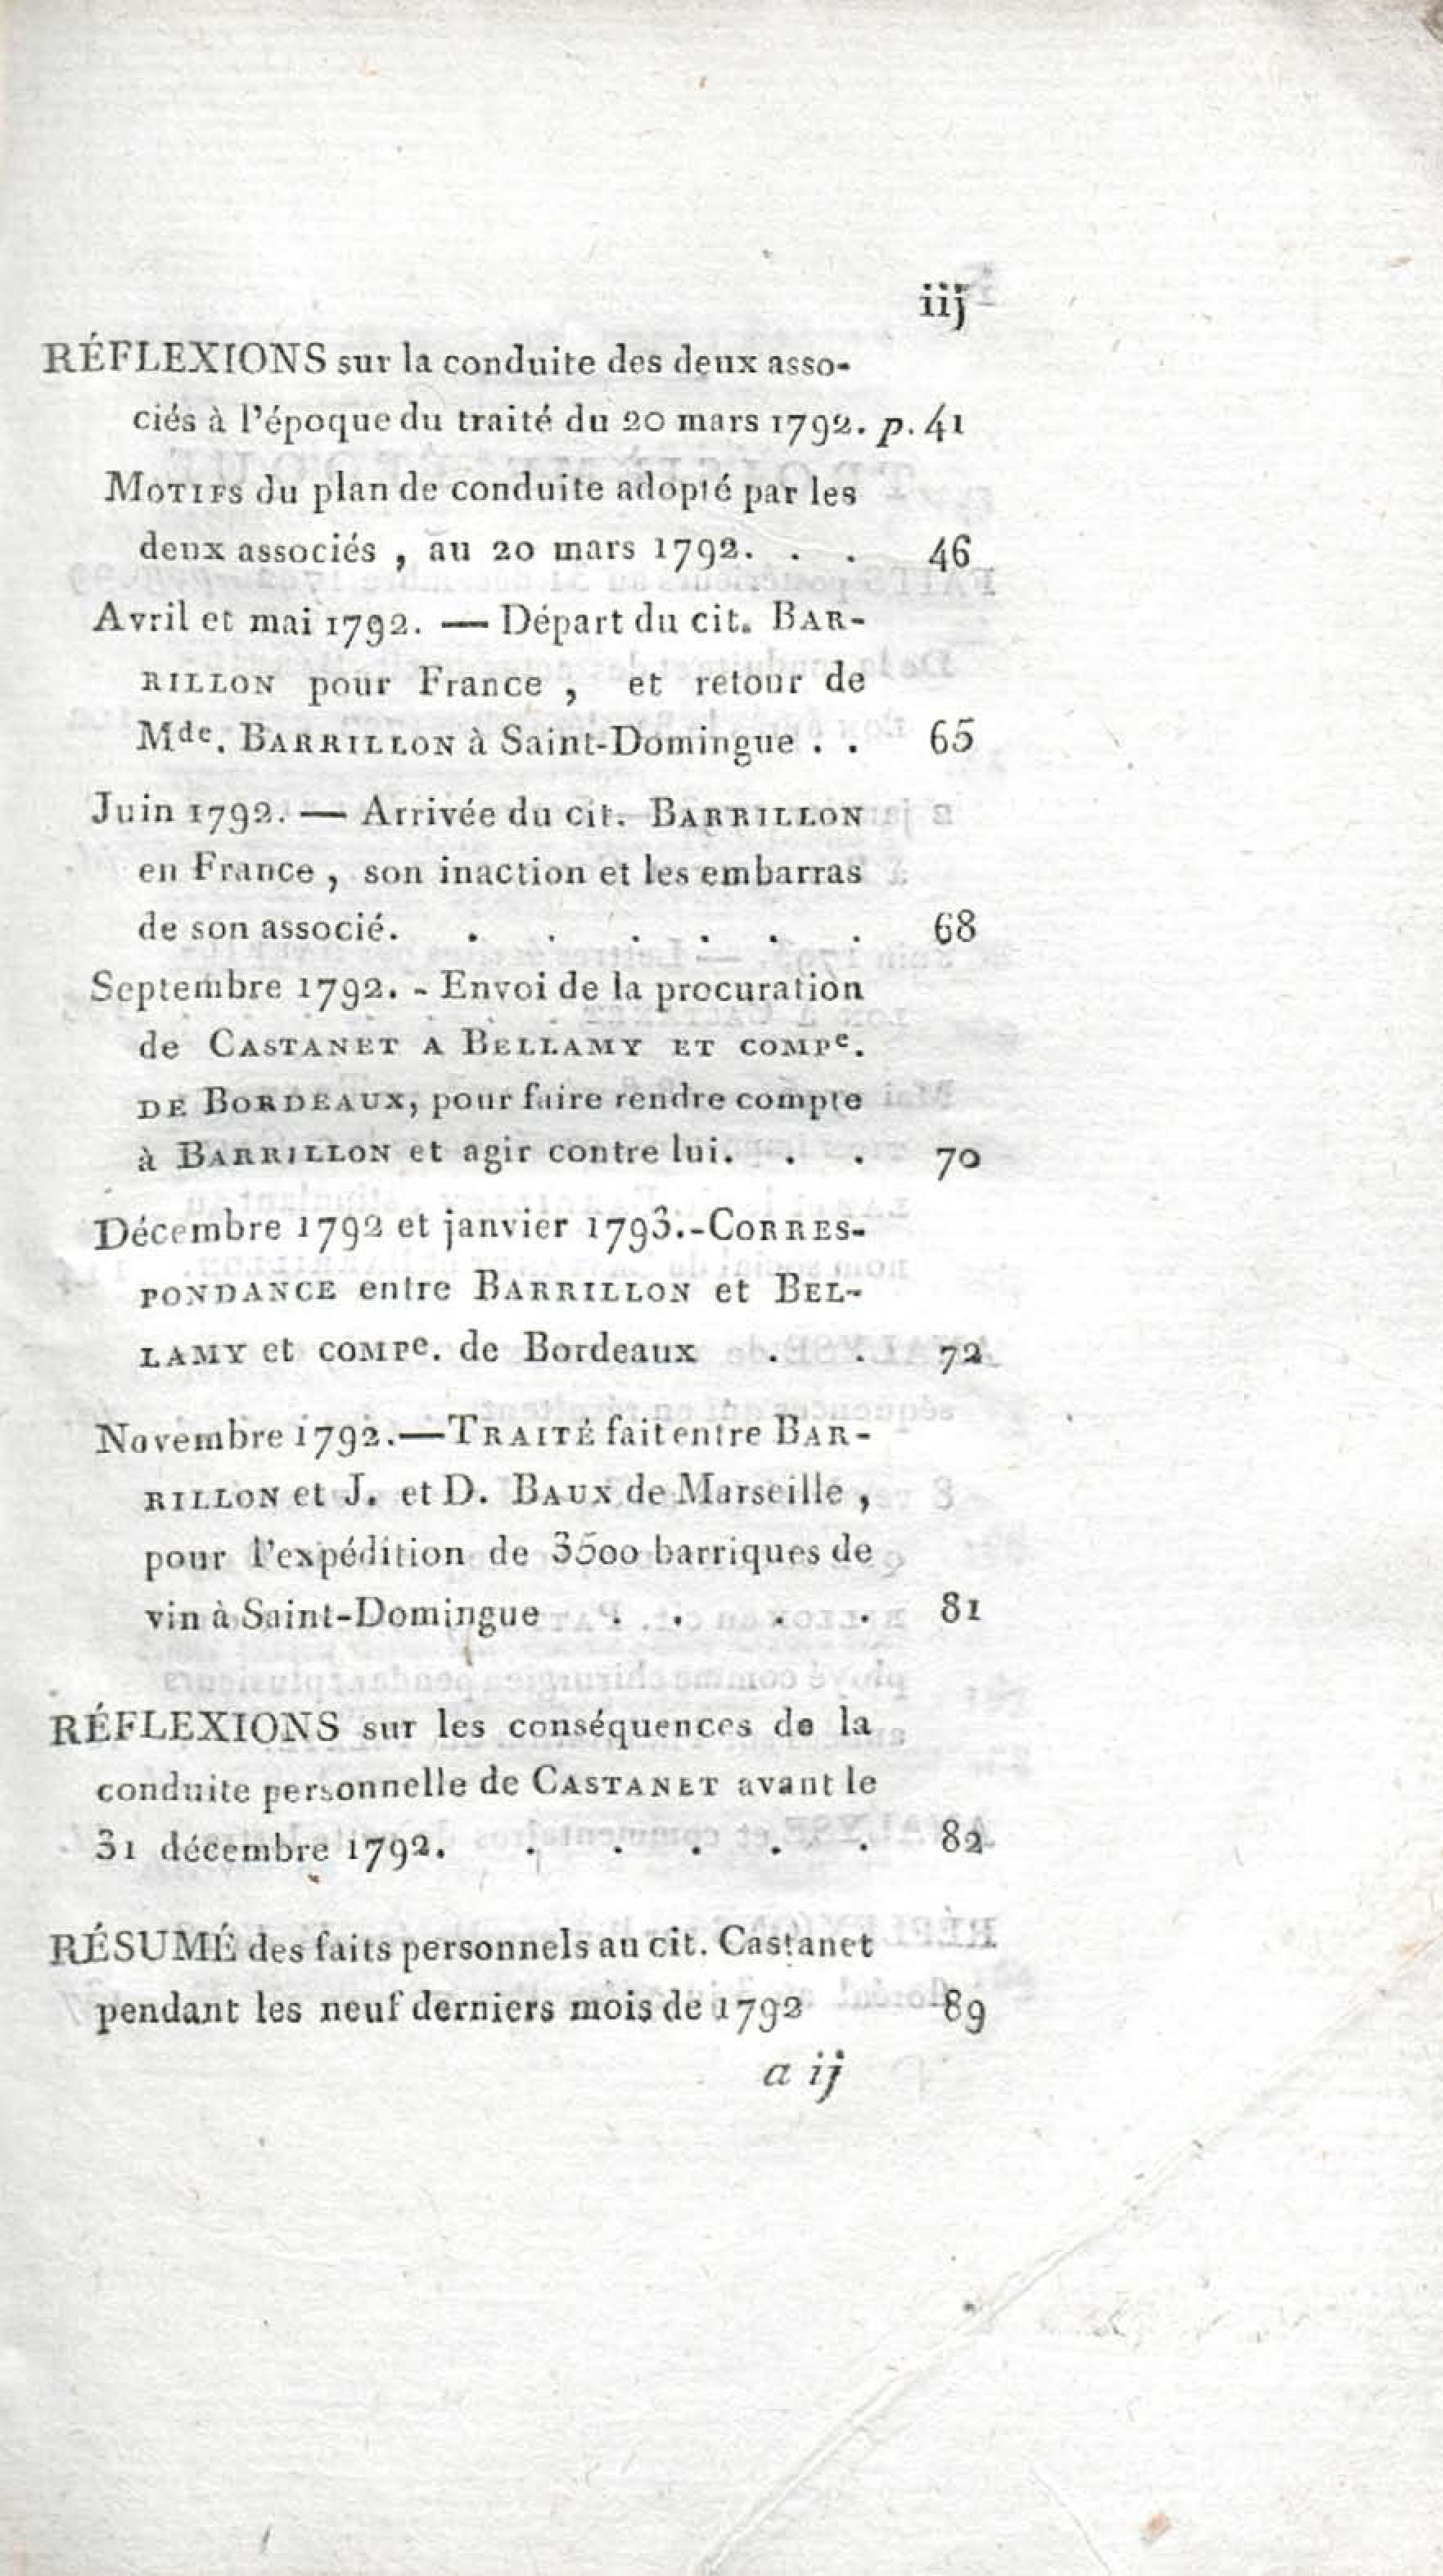 iij
RÉFLEXIONS sur la conduite des deux asso-
ciés à l'époque du traité du 20 mars 1792. p. 41
MOTIFS du plan de conduite adopté par les
deux associés , au 20 mars 1792. . . 46
Avril et mai 1792. — Départ du cit. BAR-
RILLON pour France , et retour de
Mde. BARRILLON à Saint-Domingue . . 65
Juin 1792. — Arrivée du cit. BARRILLON
en France , son inaction et les embarras
de son associé. . . . . . . 68
Septembre 1792. - Envoi de la procuration
de CASTANET A BELLAMY ET COMPe.
DE BORDEAUX, pour faire rendre compte
à BARRILLON et agir contre lui. . . 70
Décembre 1792 et janvier 1793.-CORRES-
PONDANCE entre BARRILLON et BEL-
LAMY et COMPe. de Bordeaux . . 72
Novembre 1792.—TRAITÉ fait entre BAR-
RILLON et J. et D. BAUX de Marseille ,
pour l'expédition de 3500 barriques de
vin à Saint-Domingue . . . . 81
RÉFLEXIONS sur les conséquences de la
conduite personnelle de CASTANET avant le
31 décembre 1792. . . . . . 82
RÉSUMÉ des faits personnels au cit. Castanet
pendant les neuf derniers mois de 1792 89
a ij